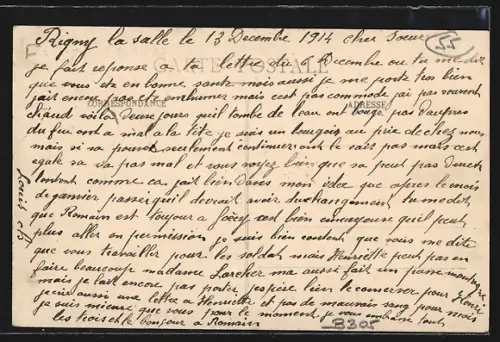 Rigny la salle le 13 Decembre 1914 cher soeur
55
je fait reponse a ta lettre du 6 Decembre ou tu me dit
CARTE POSTALE
que vous ete en bonne sante mois aussi je me porte tres bien
jait encore pas ete enrhumer mais cest pas commode jai pas souvent
CORRESPONDANCE
ADRESSE
chaud voila Deux jours quil tombe de leau ont bouge pas daupres
du feu ont a mal a la tete je suis un bourgois au prie de chez nous
mais si sa pouvai seulement continuer ont le sait pas mais cest
egale sa va pas mal et vous voyez bien que sa peut pas durer
lontent comme ca jait bien dans mon idee que apres le mois
de janvier passer quil devrait avoir du changement tu me dit
que Romain est toujour a cest bien ennuyeuse quil peut
plus aller en permission je suis bien content que vous me dite
que vous travailler pour les soldat mois Henriette peut pas en
faire beaucoup madame Larcher ma aussi fait un passe montagne
mais je lait encore pas porter jespire bien le conserver pour
jecrit aussi une lettre a Henriette et pas de mauvais sang pour mois
je suis mieux que vous pour le moment je vous embrasse tout
les bonjour a Romain
Louis
B305